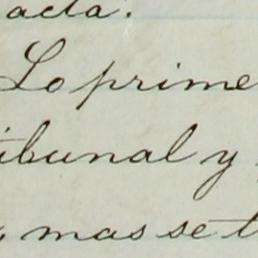 acta.
Lo prime
ibunal y
y mas se t